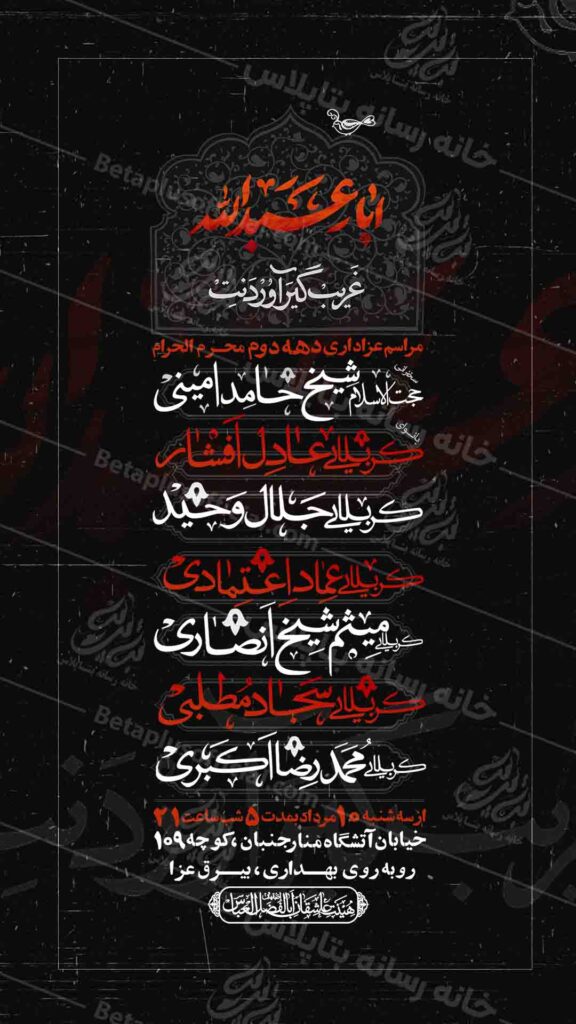 اباعبدالله
غریب گیر آوردنت
مراسم عزاداری دهه دوم محرم الحرام
سخنرانی
حجت الاسلام شیخ حامد امینی
بانوای
کربلایی عادل افشار
کربلایی جلال وحید
کربلایی عماد اعتمادی
کربلایی میثم شیخ انصاری
کربلایی سجاد مطلبی
کربلایی محمدرضا اکبری
از سه شنبه ۱۰ مرداد بمدت ۵ شب ساعت ۲۱
خیابان آتشگاه منارجنبان ،کوچه ۱۰۹
روبه روی بهداری ، بیرق عزا
هیئت عاشقان اباالفضل العباس
خانه رسانه بتاپلاس
Betaplus.com